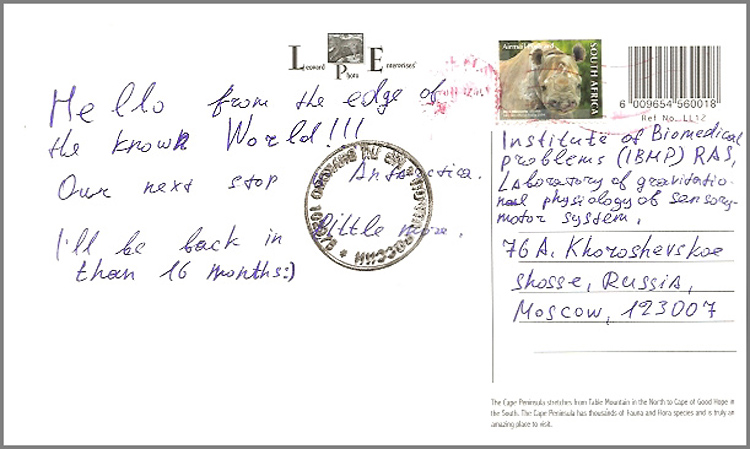 Leopard Photo Enterprises
Hello from the edge of
the known World!!!
Our next stop is Antarctica.
I'll be back in little more,
than 16 months:)
Airmail Postcard
SOUTH AFRICA
6 009654 560018
Ref No. LL12
Institute of Biomedical
problems (IBMP) RAS,
Laboratory of gravitatio-
nal physiology of sensory-
motor system.
76A. Khoroshevskoe
shosse, Russia,
Moscow, 123007
The Cape Peninsula stretches from Table Mountain in the North to Cape of Good Hope in
the South. The Cape Peninsula has thousands of Fauna and Flora species and is truly an
amazing place to visit.